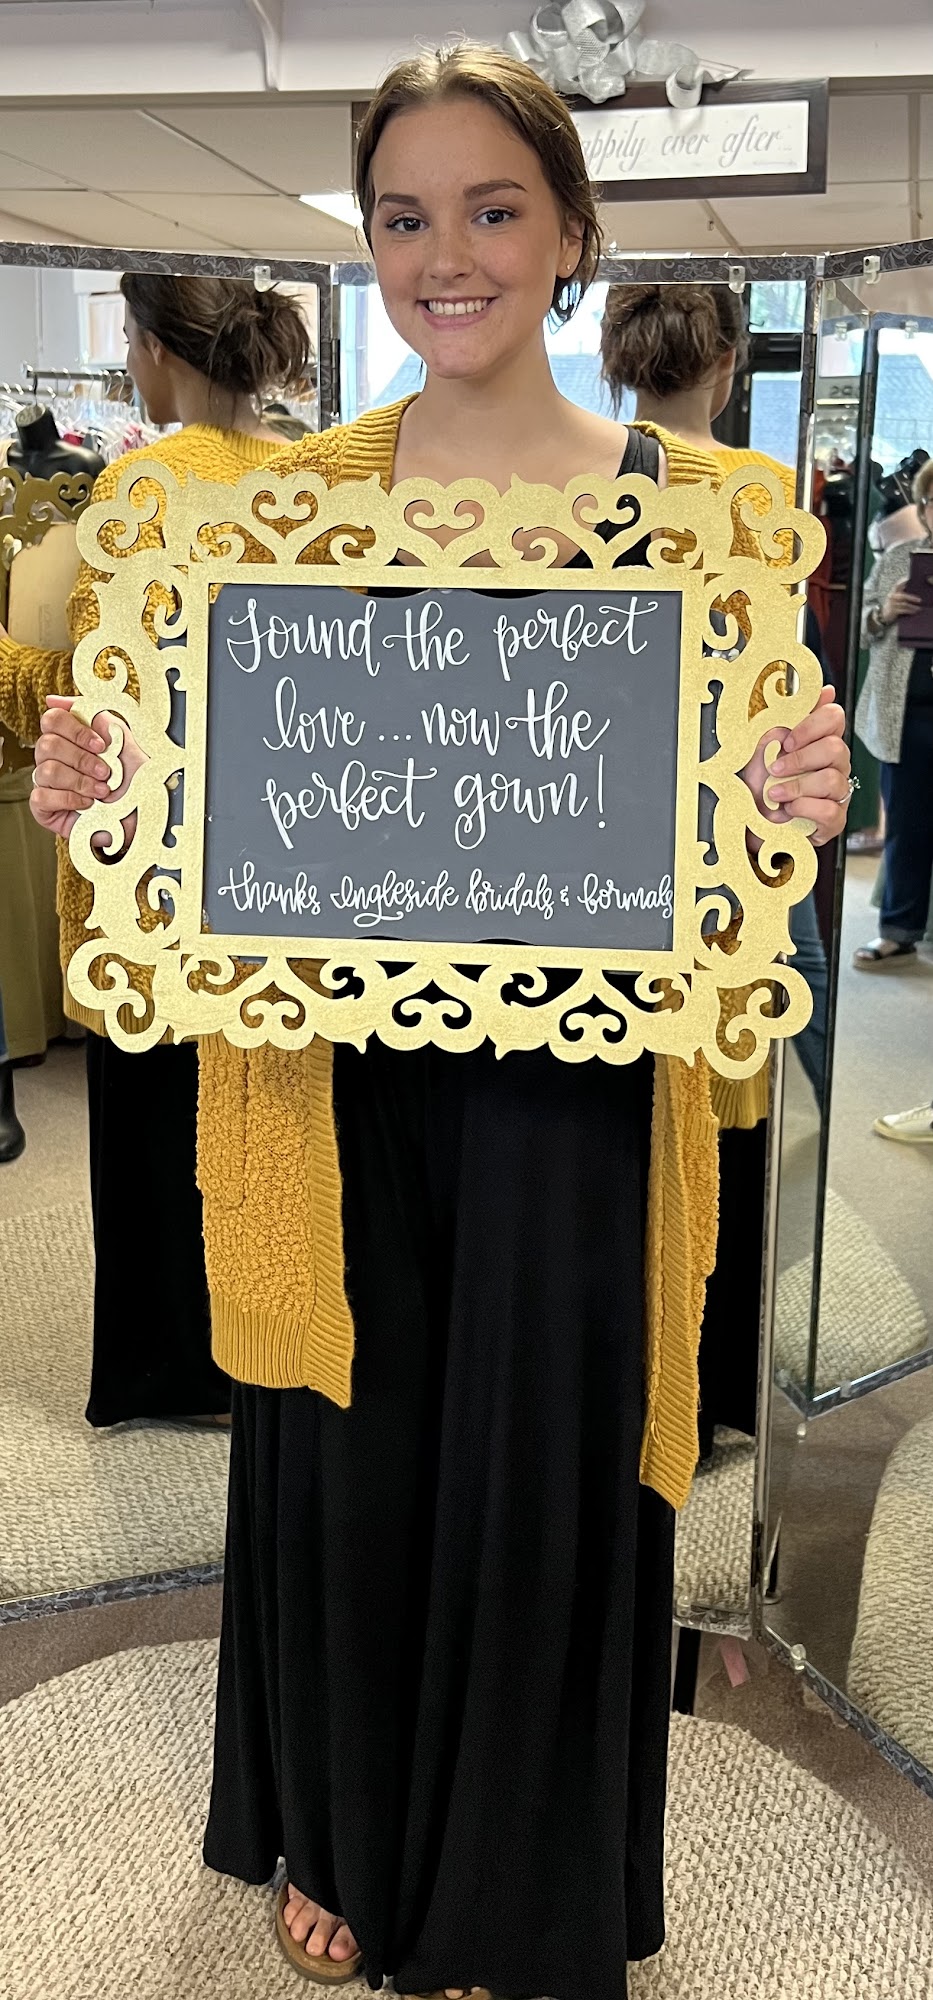 appily ever after
Found the perfect
love... now the
perfect gown!
thanks Ingleside bridals & formals